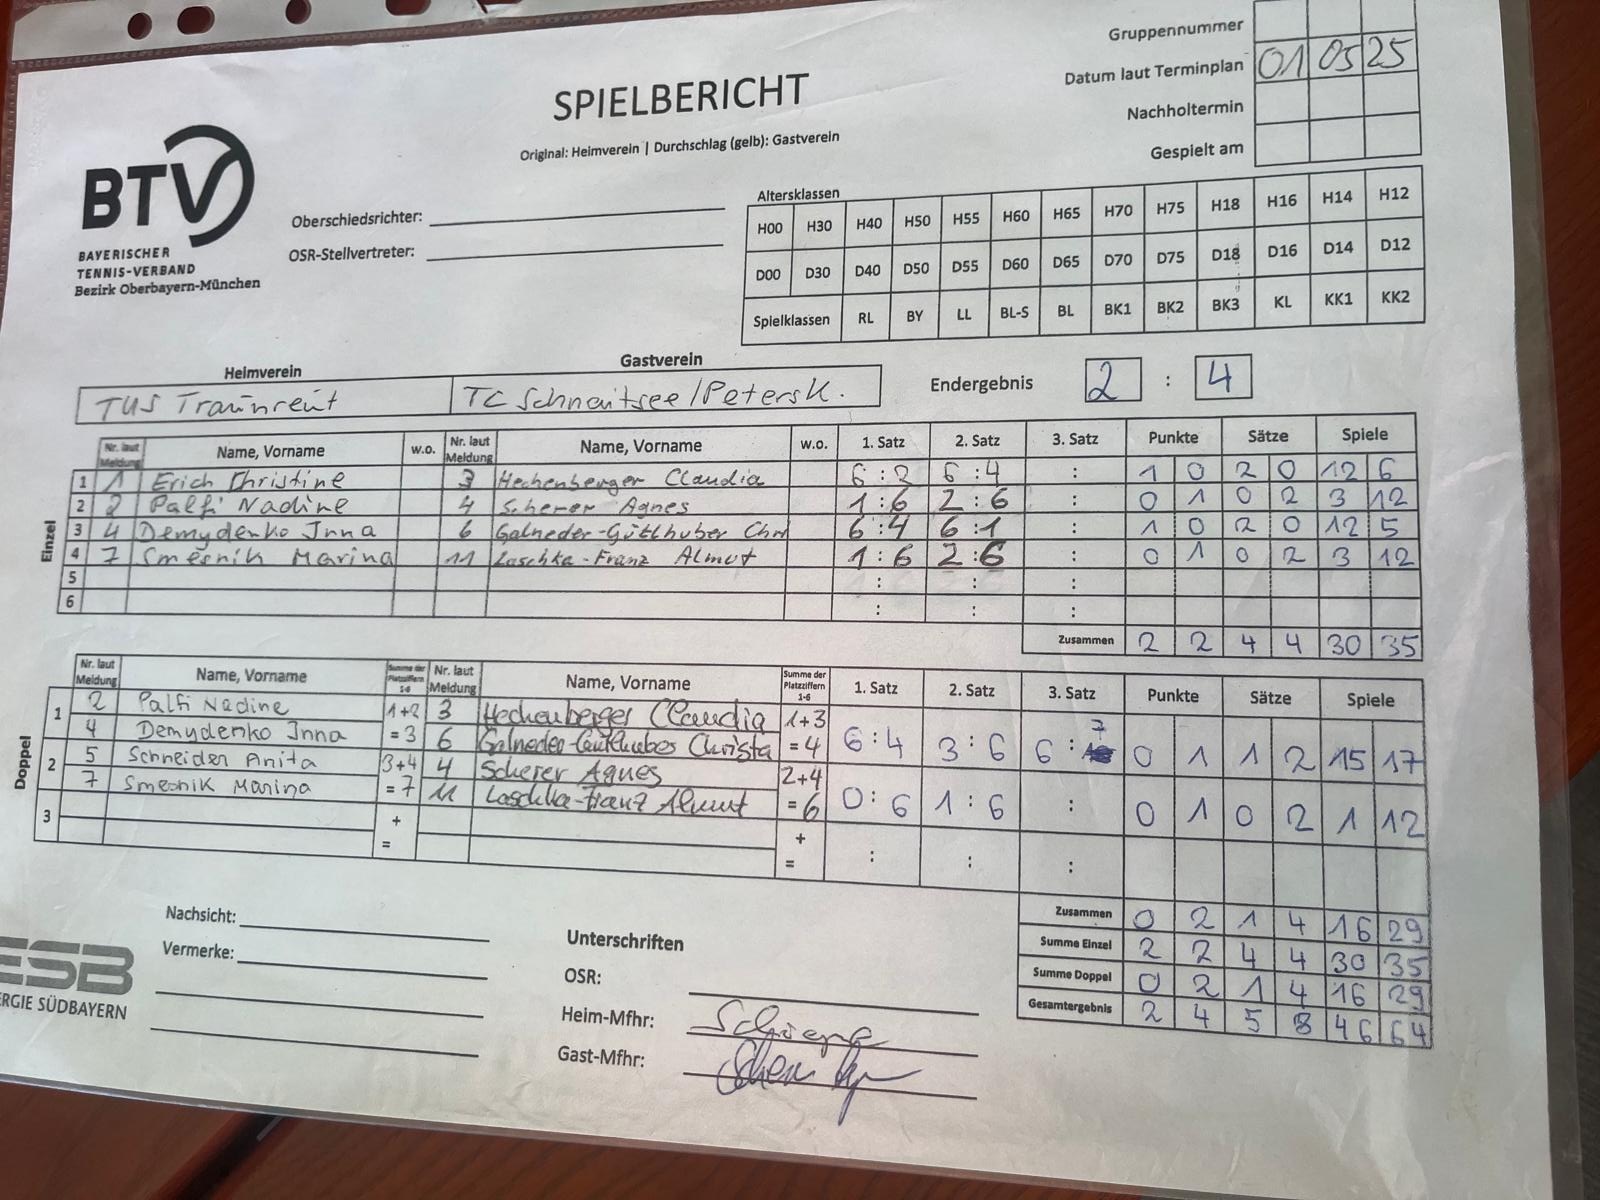 Gruppennummer
Datum laut Terminplan 01 05 25
Nachholtermin
Gespielt am
SPIELBERICHT
Original: Heimverein | Durchschlag (gelb): Gastverein
BTV
BAYERISCHER
TENNIS-VERBAND
Bezirk Oberbayern-München
Oberschiedsrichter:
OSR-Stellvertreter:
Altersklassen
H00 H30 H40 H50 H55 H60 H65 H70 H75 H18 H16 H14 H12
D00 D30 D40 D50 D55 D60 D65 D70 D75 D18 D16 D14 D12
Spielklassen RL BY LL BL-S BL BK1 BK2 BK3 KL KK1 KK2
Heimverein Gastverein
TUS Traunreut TC Schnaitsee/Petersk. Endergebnis 2 : 4
Nr. laut Meldung Name, Vorname w.o. Nr. laut Meldung Name, Vorname w.o. 1. Satz 2. Satz 3. Satz Punkte Sätze Spiele
Einzel
1 1 Erich Christine 3 Hechenberger Claudia 6:2 6:4 : 1 0 2 0 12 6
2 2 Palfi Nadine 4 Scherer Agnes 1:6 2:6 : 0 1 0 2 3 12
3 4 Demydenko Inna 6 Galneder-Gütlhuber Chri 6:4 6:1 : 1 0 2 0 12 5
4 7 Smesnik Marina 11 Laschka-Franz Almut 1:6 2:6 : 0 1 0 2 3 12
5 : : :
6 : : :
Zusammen 2 2 4 4 30 35
Nr. laut Meldung Name, Vorname Summe der Platzziffern 1-6 Nr. laut Meldung Name, Vorname Summe der Platzziffern 1-6 1. Satz 2. Satz 3. Satz Punkte Sätze Spiele
Doppel
1 2 Palfi Nadine 1+2 3 Hechenberger Claudia 1+3
4 Demydenko Inna =3 6 Galneder-Gütlhuber Christa =4 6:4 3:6 6:7 0 1 1 2 15 17
2 5 Schneider Anita 3+4 4 Scherer Agnes 2+4
7 Smesnik Marina =7 11 Laschka-Franz Almut =6 0:6 1:6 : 0 1 0 2 1 12
3 + +
= = : : :
Zusammen 0 2 1 4 16 29
Summe Einzel 2 2 4 4 30 35
Summe Doppel 0 2 1 4 16 29
Gesamtergebnis 2 4 5 8 46 64
Nachsicht:
Vermerke:
ESB
ERGIE SÜDBAYERN
Unterschriften
OSR:
Heim-Mfhr:
Gast-Mfhr: